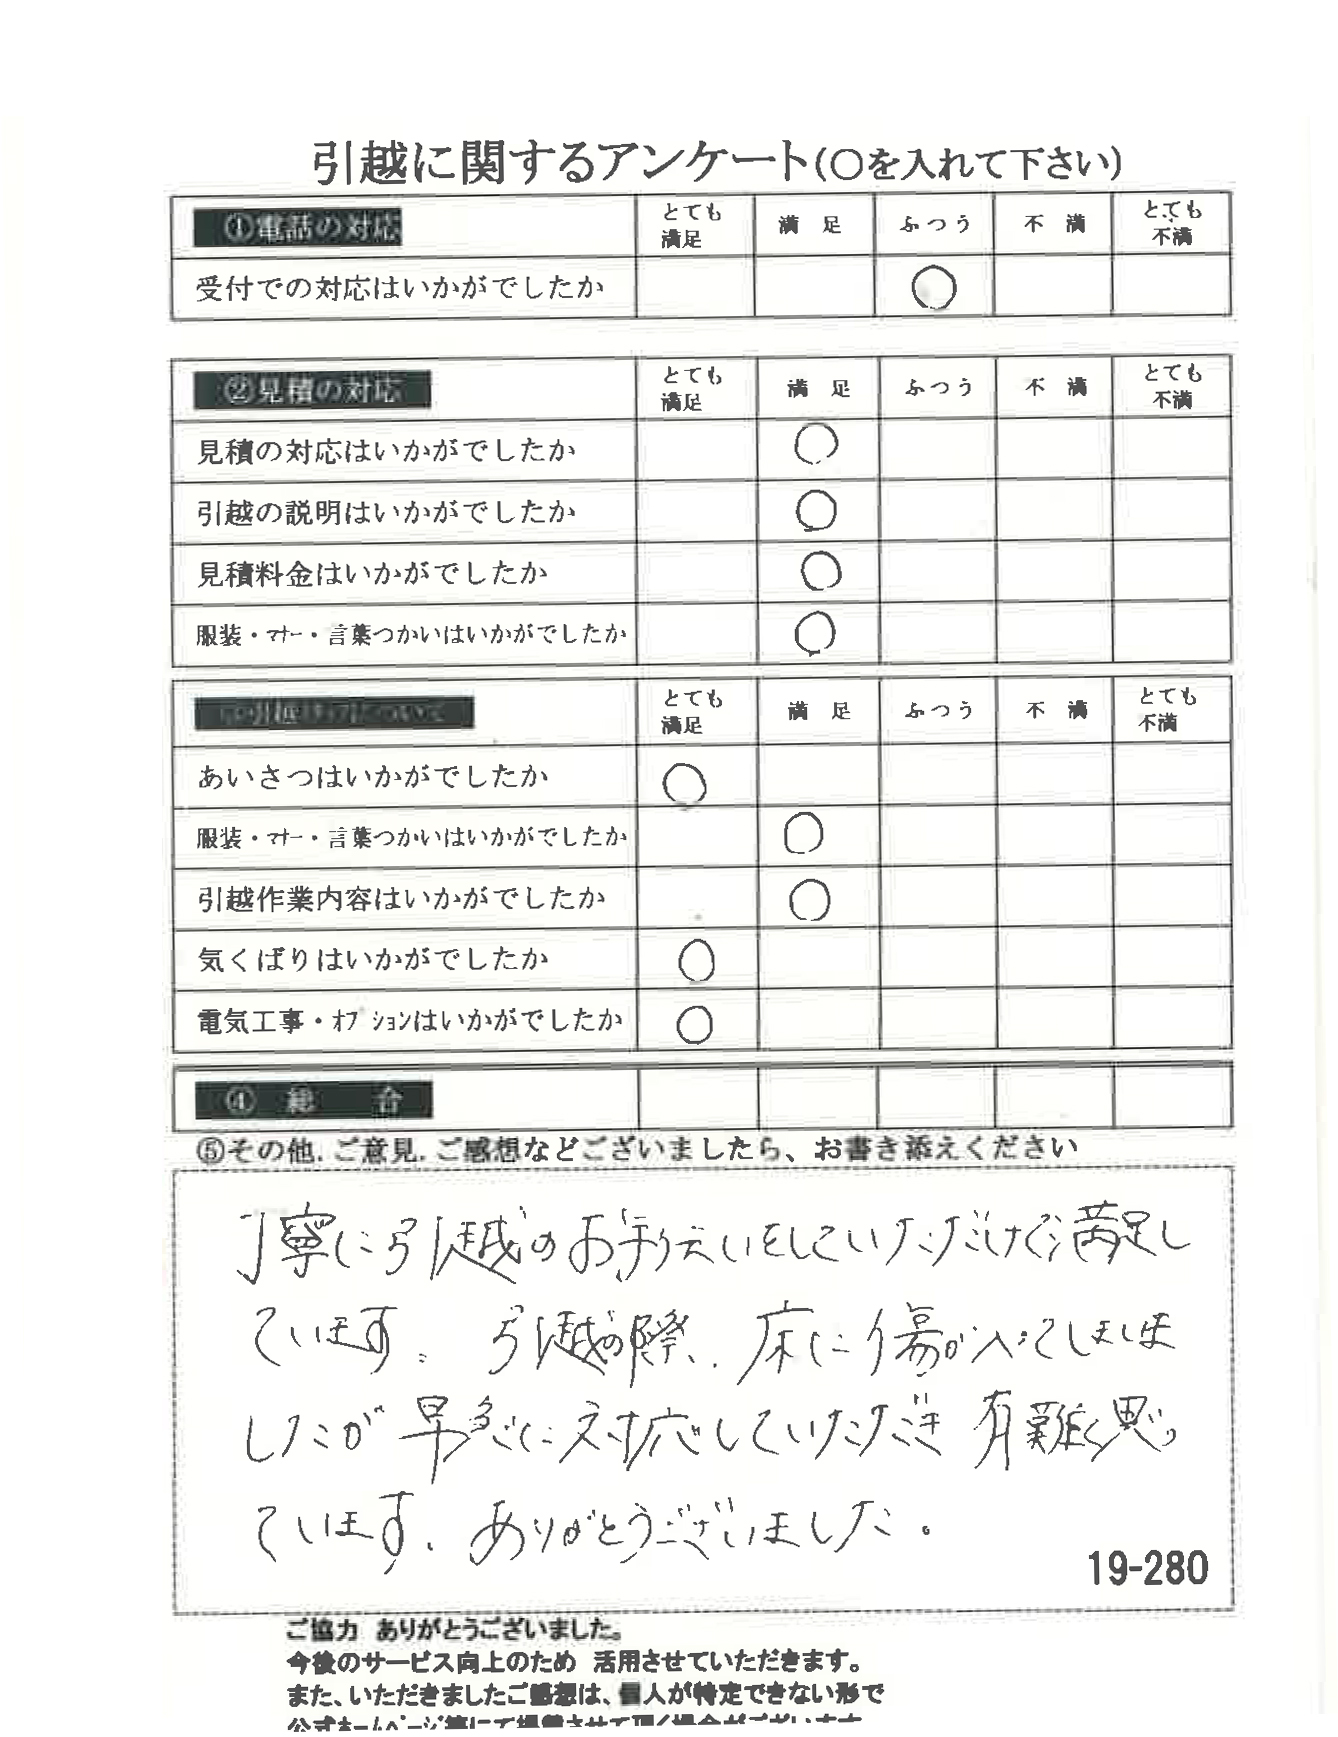 引越に関するアンケート(〇を入れて下さい)
①電話の対応 とても満足 満 足 ふつう 不 満 とても不満
受付での対応はいかがでしたか ○
②見積の対応 とても満足 満 足 ふつう 不 満 とても不満
見積の対応はいかがでしたか ○
引越の説明はいかがでしたか ○
見積料金はいかがでしたか ○
服装・マナー・言葉つかいはいかがでしたか ○
とても満足 満 足 ふつう 不 満 とても不満
あいさつはいかがでしたか ○
服装・マナー・言葉つかいはいかがでしたか ○
引越作業内容はいかがでしたか ○
気くばりはいかがでしたか ○
電気工事・オプションはいかがでしたか ○
④ 総 合
⑤その他.ご意見.ご感想などございましたら、お書き添えください
丁寧に引越のお手伝いをしていただけて満足し
ています。引越の際、床に傷が入ってしまいま
したが早急に対応していただき有難く思っ
ています。ありがとうございました。
19-280
ご協力 ありがとうございました。
今後のサービス向上のため 活用させていただきます。
また、いただきましたご感想は、個人が特定できない形で